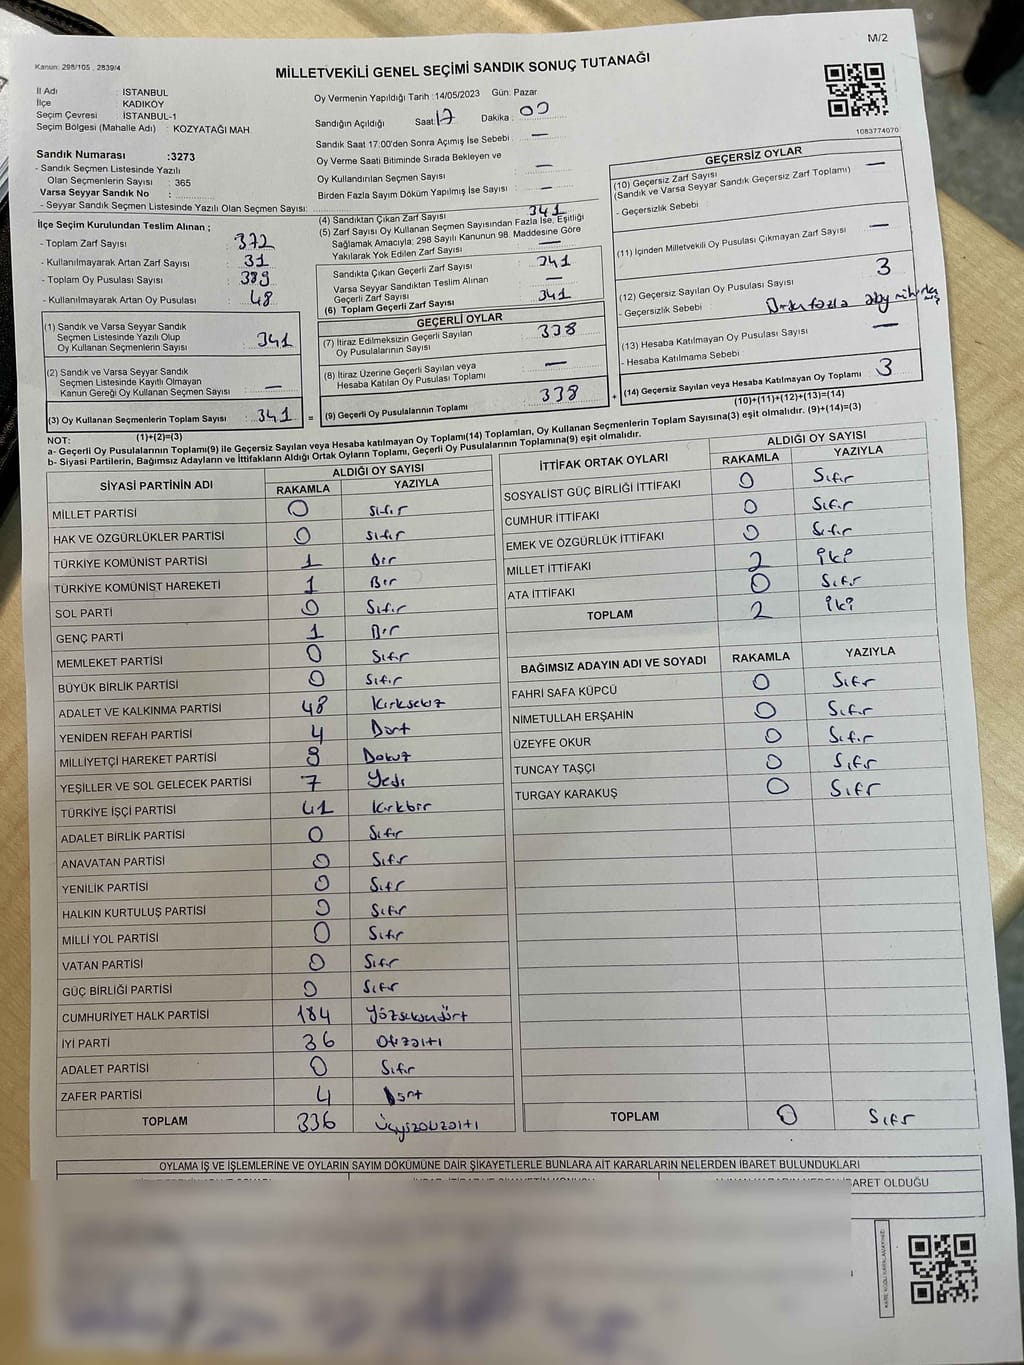 M/2
Kanun: 298/105 , 2839/4
MİLLETVEKİLİ GENEL SEÇİMİ SANDIK SONUÇ TUTANAĞI
İl Adı : İSTANBUL
İlçe : KADIKÖY
Seçim Çevresi : İSTANBUL-1
Seçim Bölgesi (Mahalle Adı) : KOZYATAĞI MAH.
Sandık Numarası :3273
- Sandık Seçmen Listesinde Yazılı
Olan Seçmenlerin Sayısı : 365
Varsa Seyyar Sandık No :
- Seyyar Sandık Seçmen Listesinde Yazılı Olan Seçmen Sayısı:
Oy Vermenin Yapıldığı Tarih :14/05/2023 Gün: Pazar
Sandığın Açıldığı Saat: 17 Dakika : 00
Sandık Saat 17.00'den Sonra Açımış İse Sebebi : —
Oy Verme Saati Bitiminde Sırada Bekleyen ve
Oy Kullandırılan Seçmen Sayısı : —
Birden Fazla Sayım Döküm Yapılmış İse Sayısı : —
1083774070
İlçe Seçim Kurulundan Teslim Alınan ;
- Toplam Zarf Sayısı : 372
- Kullanılmayarak Artan Zarf Sayısı : 31
- Toplam Oy Pusulası Sayısı : 389
- Kullanılmayarak Artan Oy Pusulası : 48
(1) Sandık ve Varsa Seyyar Sandık
Seçmen Listesinde Yazılı Olup
Oy Kullanan Seçmenlerin Sayısı : 341
(2) Sandık ve Varsa Seyyar Sandık
Seçmen Listesinde Kayıtlı Olmayan
Kanun Gereği Oy Kullanan Seçmen Sayısı : —
(3) Oy Kullanan Seçmenlerin Toplam Sayısı : 341
(1)+(2)=(3)
(4) Sandıktan Çıkan Zarf Sayısı : 341
(5) Zarf Sayısı Oy Kullanan Seçmen Sayısından Fazla İse, Eşitliği
Sağlamak Amacıyla; 298 Sayılı Kanunun 98. Maddesine Göre
Yakılarak Yok Edilen Zarf Sayısı : —
Sandıkta Çıkan Geçerli Zarf Sayısı : 341
Varsa Seyyar Sandıktan Teslim Alınan
Geçerli Zarf Sayısı : —
(6) Toplam Geçerli Zarf Sayısı : 341
GEÇERLİ OYLAR
(7) İtiraz Edilmeksizin Geçerli Sayılan
Oy Pusulalarının Sayısı : 338
(8) İtiraz Üzerine Geçerli Sayılan veya
Hesaba Katılan Oy Pusulası Toplamı : —
= (9) Geçerli Oy Pusulalarının Toplamı : 338 +
GEÇERSİZ OYLAR
(10) Geçersiz Zarf Sayısı : —
(Sandık ve Varsa Seyyar Sandık Geçersiz Zarf Toplamı)
- Geçersizlik Sebebi :
(11) İçinden Milletvekili Oy Pusulası Çıkmayan Zarf Sayısı : —
(12) Geçersiz Sayılan Oy Pusulası Sayısı : 3
- Geçersizlik Sebebi : fazla
(13) Hesaba Katılmayan Oy Pusulası Sayısı : —
- Hesaba Katılmama Sebebi :
(14) Geçersiz Sayılan veya Hesaba Katılmayan Oy Toplamı : 3
(10)+(11)+(12)+(13)=(14)
NOT:
a- Geçerli Oy Pusulalarının Toplamı(9) ile Geçersiz Sayılan veya Hesaba katılmayan Oy Toplamı(14) Toplamları, Oy Kullanan Seçmenlerin Toplam Sayısına(3) eşit olmalıdır. (9)+(14)=(3)
b- Siyasi Partilerin, Bağımsız Adayların ve İttifakların Aldığı Ortak Oyların Toplamı, Geçerli Oy Pusulalarının Toplamına(9) eşit olmalıdır.
SİYASİ PARTİNİN ADI ALDIĞI OY SAYISI
RAKAMLA YAZIYLA
MİLLET PARTİSİ 0 Sıfır
HAK VE ÖZGÜRLÜKLER PARTİSİ 0 Sıfır
TÜRKİYE KOMÜNİST PARTİSİ 1 Bir
TÜRKİYE KOMÜNİST HAREKETİ 1 Bir
SOL PARTİ 0 Sıfır
GENÇ PARTİ 1 Bir
MEMLEKET PARTİSİ 0 Sıfır
BÜYÜK BİRLİK PARTİSİ 0 Sıfır
ADALET VE KALKINMA PARTİSİ 48 Kırksekiz
YENİDEN REFAH PARTİSİ 4 Dört
MİLLİYETÇİ HAREKET PARTİSİ 9 Dokuz
YEŞİLLER VE SOL GELECEK PARTİSİ 7 Yedi
TÜRKİYE İŞÇİ PARTİSİ 41 Kırkbir
ADALET BİRLİK PARTİSİ 0 Sıfır
ANAVATAN PARTİSİ 0 Sıfır
YENİLİK PARTİSİ 0 Sıfır
HALKIN KURTULUŞ PARTİSİ 0 Sıfır
MİLLİ YOL PARTİSİ 0 Sıfır
VATAN PARTİSİ 0 Sıfır
GÜÇ BİRLİĞİ PARTİSİ 0 Sıfır
CUMHURİYET HALK PARTİSİ 184 Yüzseksendört
İYİ PARTİ 36 Otuzaltı
ADALET PARTİSİ 0 Sıfır
ZAFER PARTİSİ 4 Dört
TOPLAM 336 Üçyüzotuzaltı
İTTİFAK ORTAK OYLARI ALDIĞI OY SAYISI
RAKAMLA YAZIYLA
SOSYALİST GÜÇ BİRLİĞİ İTTİFAKI 0 Sıfır
CUMHUR İTTİFAKI 0 Sıfır
EMEK VE ÖZGÜRLÜK İTTİFAKI 0 Sıfır
MİLLET İTTİFAKI 2 İki
ATA İTTİFAKI 0 Sıfır
TOPLAM 2 İki
BAĞIMSIZ ADAYIN ADI VE SOYADI RAKAMLA YAZIYLA
FAHRİ SAFA KÜPCÜ 0 Sıfır
NİMETULLAH ERŞAHİN 0 Sıfır
ÜZEYFE OKUR 0 Sıfır
TUNCAY TAŞÇI 0 Sıfır
TURGAY KARAKUŞ 0 Sıfır
TOPLAM 0 Sıfır
OYLAMA İŞ VE İŞLEMLERİNE VE OYLARIN SAYIM DÖKÜMÜNE DAİR ŞİKAYETLERLE BUNLARA AİT KARARLARIN NELERDEN İBARET BULUNDUKLARI
İBARET OLDUĞU